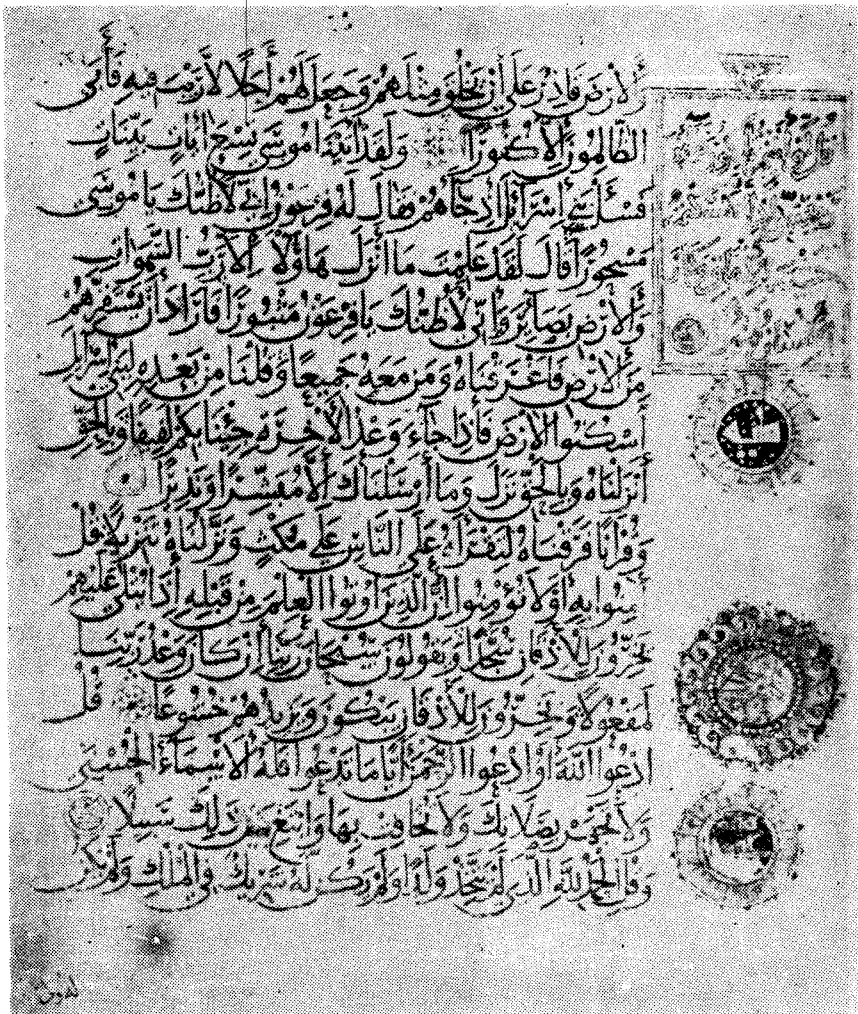 وَالْأَرْضَ قَادِرٌ عَلَى أَنْ يَخْلُقَ مِثْلَهُمْ وَجَعَلَ لَهُمْ أَجَلًا لَا رَيْبَ فِيهِ فَأَبَى
الظَّالِمُونَ إِلَّا كُفُورًا وَلَقَدْ اٰتَيْنَا مُوسَى تِسْعَ اٰيَاتٍ بَيِّنَاتٍ
فَسْئَلْ بَنِي إِسْرَائِلَ إِذْ جَاءَهُمْ فَقَالَ لَهُ فِرْعَوْنُ إِنِّي لَأَظُنُّكَ يَا مُوسَى
مَسْحُورًا قَالَ لَقَدْ عَلِمْتَ مَا أَنْزَلَ هَاؤُلَاءِ إِلَّا رَبُّ السَّمَوَاتِ
وَالْأَرْضِ بَصَائِرَ وَإِنِّي لَأَظُنُّكَ يَا فِرْعَوْنُ مَثْبُورًا فَأَرَادَ أَنْ يَسْتَفِزَّهُمْ
مِنَ الْأَرْضِ فَأَغْرَقْنَاهُ وَمَنْ مَعَهُ جَمِيعًا وَقُلْنَا مِنْ بَعْدِهِ لِبَنِي إِسْرَائِلَ
اسْكُنُوا الْأَرْضَ فَإِذَا جَاءَ وَعْدُ الْأَخِرَةِ جِئْنَا بِكُمْ لَفِيفًا وَبِالْحَقِّ
أَنْزَلْنَاهُ وَبِالْحَقِّ نَزَلَ وَمَا أَرْسَلْنَاكَ إِلَّا مُبَشِّرًا وَنَذِيرًا
وَقُرْاٰنًا فَرَقْنَاهُ لِتَقْرَأَهُ عَلَى النَّاسِ عَلَى مُكْثٍ وَنَزَّلْنَاهُ تَنْزِيلًا قُلْ
اٰمِنُوا بِهِ أَوْ لَا تُؤْمِنُوا إِنَّ الَّذِينَ أُوتُوا الْعِلْمَ مِنْ قَبْلِهِ إِذَا يُتْلَى عَلَيْهِمْ
يَخِرُّونَ لِلْأَذْقَانِ سُجَّدًا وَيَقُولُونَ سُبْحَانَ رَبِّنَا إِنْ كَانَ وَعْدُ رَبِّنَا
لَمَفْعُولًا وَيَخِرُّونَ لِلْأَذْقَانِ يَبْكُونَ وَيَزِيدُهُمْ خُشُوعًا قُلْ
ادْعُوا اللهَ أَوِ ادْعُوا الرَّحْمٰنَ أَيًّا مَا تَدْعُوا فَلَهُ الْأَسْمَاءُ الْحُسْنَى
وَلَا تَجْهَرْ بِصَلَاتِكَ وَلَا تُخَافِتْ بِهَا وَابْتَغِ بَيْنَ ذَلِكَ سَبِيلًا
وَقُلِ الْحَمْدُ لِلَّهِ الَّذِي لَمْ يَتَّخِذْ وَلَدًا وَلَمْ يَكُنْ لَهُ شَرِيكٌ فِي الْمُلْكِ وَلَمْ يَكُنْ
له ولي